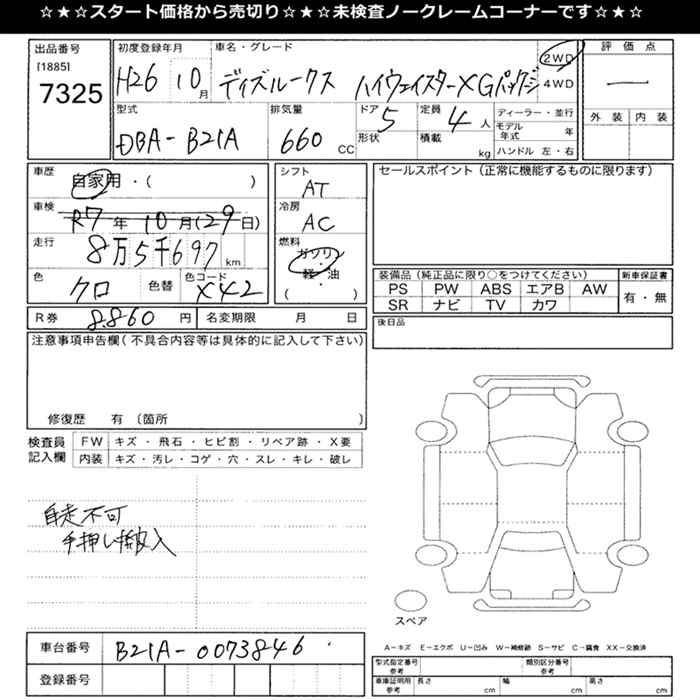 ☆★☆★スタート価格から売切り☆★☆★未検査ノークレームコーナーです☆★☆
出品番号
[1885]
7325
初度登録年月
H26 10月
車名・グレード
ディズルークス ハイウェイスターX Gパッケージ
2WD
4WD
評価点
―
外装 内装
型式
DBA-B21A
排気量
660 CC
ドア 5
形状
定員 4 人
積載 kg
ディーラー・並行
モデル年式 年
ハンドル 左・右
車歴
自家用・( )
車検
R7年10月(29日)
走行
8万5千697 km
色
クロ
色替
色コード
X42
シフト
AT
冷房
AC
燃料
ガソリン・軽油
( )
セールスポイント(正常に機能するものに限ります)
装備品(純正品に限り○をつけてください)
PS PW ABS エアB AW
SR ナビ TV カワ
新車保証書
有・無
R券 8860円
名変期限 月 日
後日品
注意事項申告欄(不具合内容等は具体的に記入して下さい)
修復歴 有 〔箇所
検査員記入欄
FW キズ・飛石・ヒビ割・リペア跡・X要
内装 キズ・汚レ・コゲ・穴・スレ・キレ・破レ
自走不可
手押し搬入
スペア
車台番号 B21A-0073846
登録番号
A-キズ E-エクボ U-凹み W-補修跡 S-サビ C-腐食 XX-交換済
型式指定番号参考
類別区分番号参考
車庫証明用参考 長さ cm 幅 cm 高さ cm